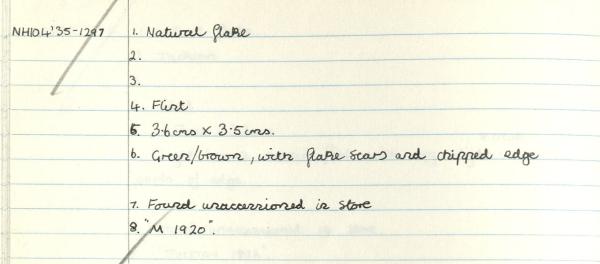 NH104'35-1297 1. Natural flake
2.
3.
4. Flint
5. 3.6cms x 3.5cms.
6. Green/brown, with flake scars and chipped edge
7. Found unaccessioned in store
8. "M 1920".